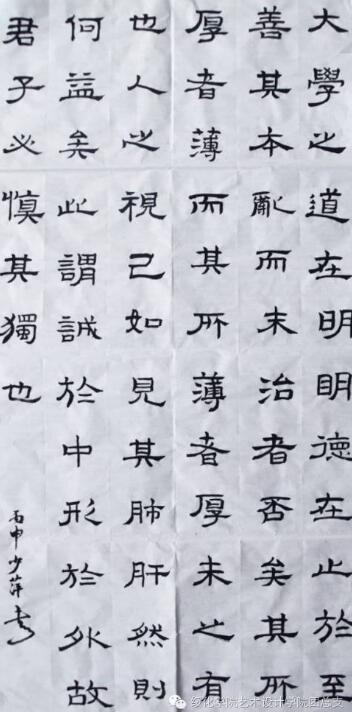 大學之道在明明德在止於至
善其本亂而末治者否矣其所
厚者薄而其所薄者厚未之有
也人之視己如見其肺肝然則
何益矣此謂誠於中形於外故
君子必慎其獨也
丙申少萍書
绥化学院艺术设计学院团总支